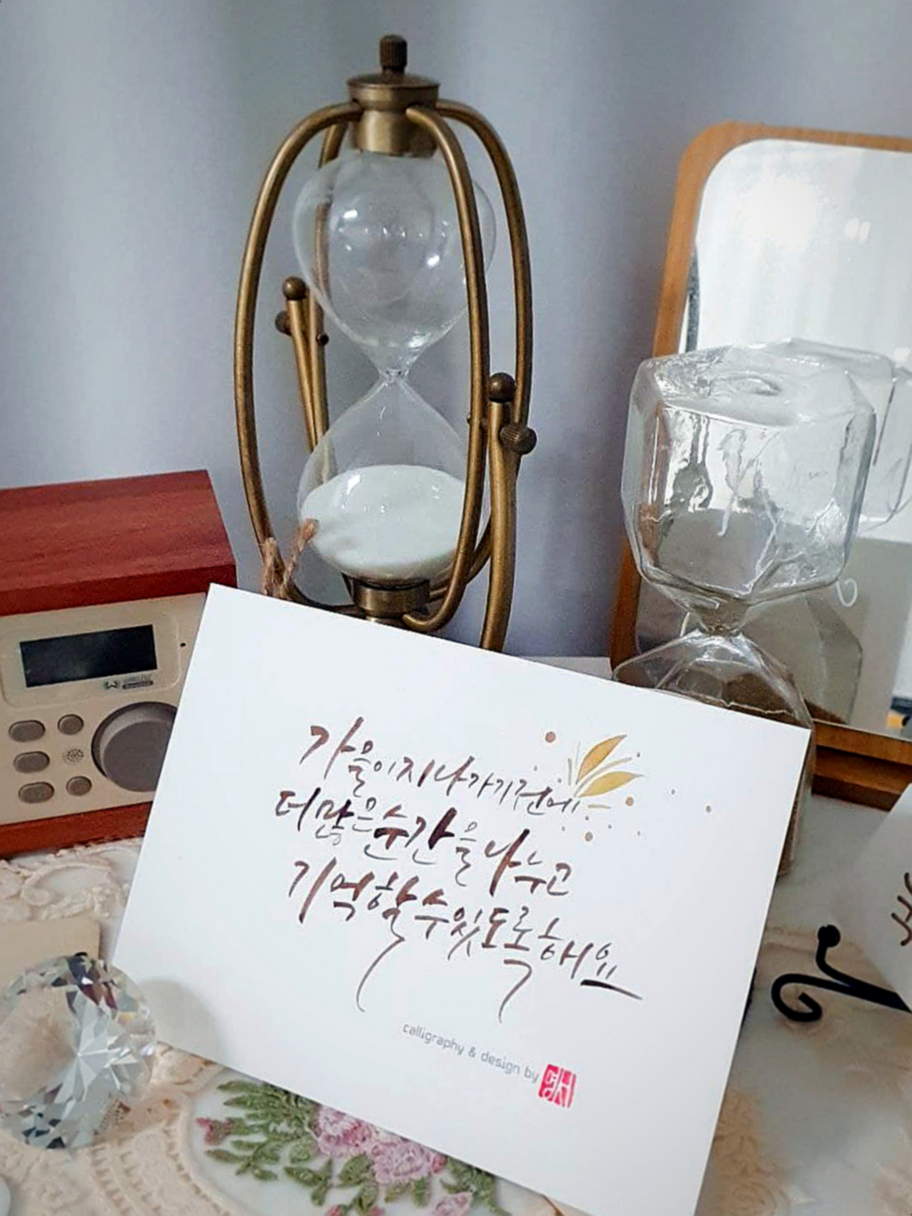 가을이 지나가기 전에
더 많은 순간을 나누고
기억할 수 있도록 해요
calligraphy & design by